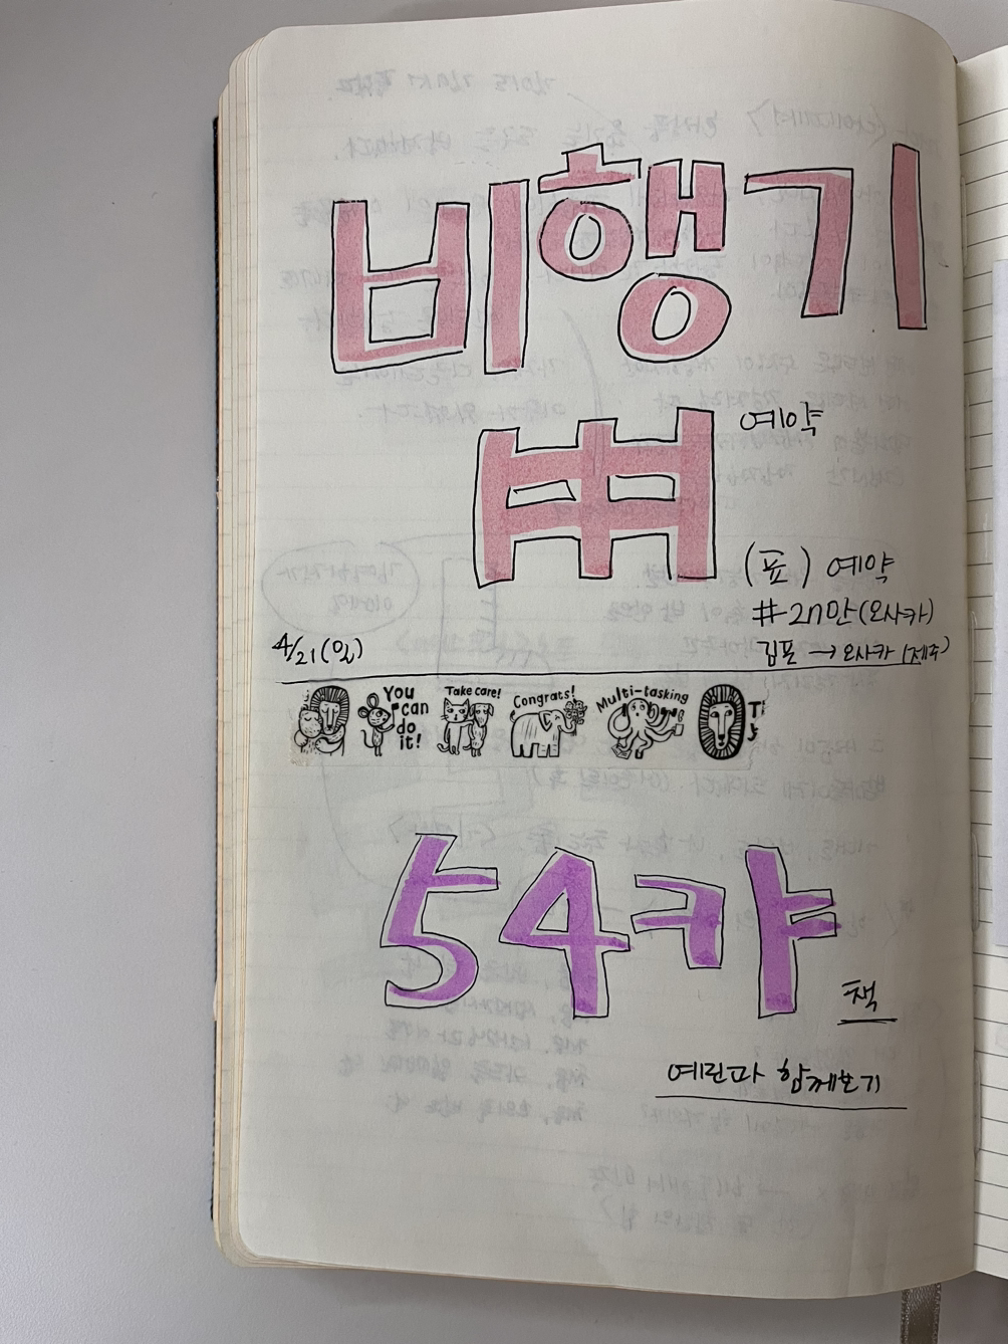 비행기
예약
(표) 예약
#2n만(오사카)
4/21(일)
김포 → 오사카 (제주)
You can do it!
Take care!
Congrats!
Multi-tasking
54캬
책
예린과 함께보기